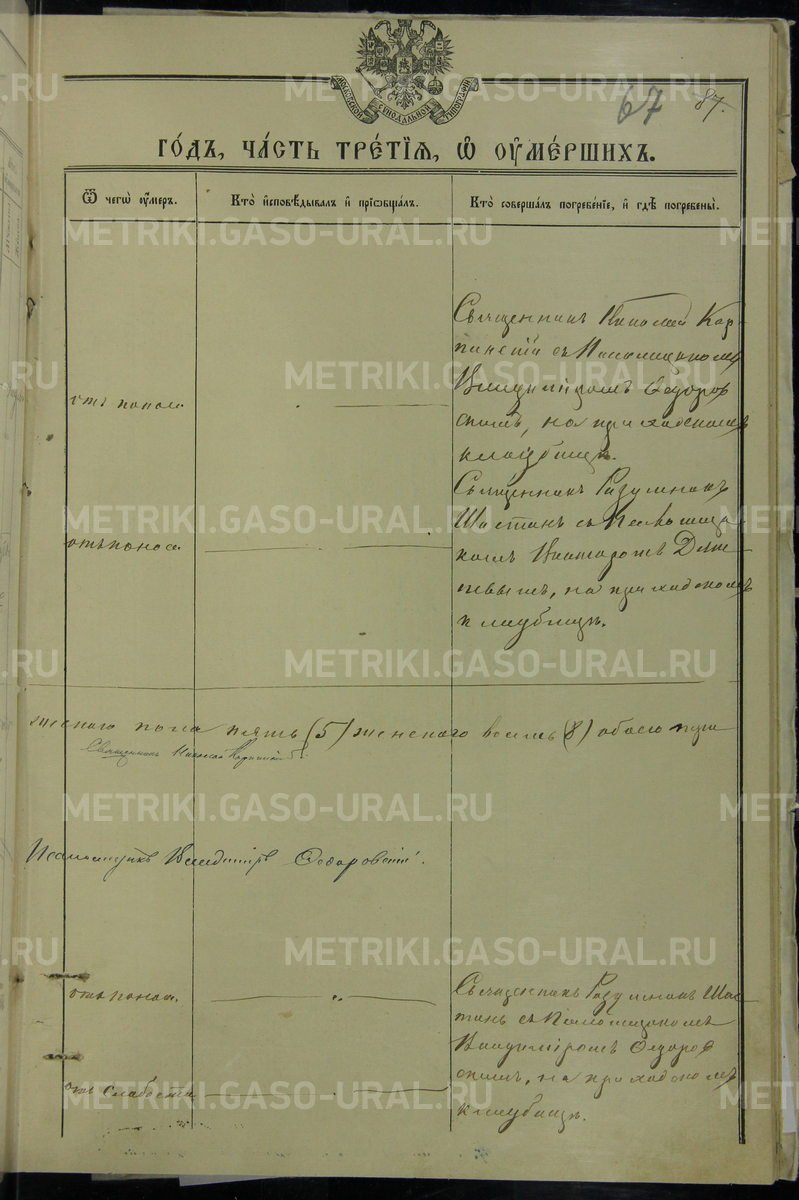 МОСКОВСКОЙ СУНОДАЛЬНОЙ ТИПОГРАФІИ
67 87.
ГО́ДЪ, ЧА́СТЬ ТРЕ́ТІѦ, Ѡ҆ ОУ҆МЕ́РШИХЪ.
Ѿ чегѡ̀ оу҆́меръ.
Кто̀ и҆сповѣ́дывалъ и҆ прїѡбща́лъ.
Кто̀ соверша́лъ погребе́нїе, и҆ гдѣ̀ погребены̀.
Священникъ Николай Кар-
пинскій съ Псаломщикомъ
Владиміромъ Ѳедоров
скимъ, на приходскомъ
кладбищѣ.
отъ поноса
Священникъ Разумникъ
Шастинъ съ Псаломщи
комъ
вымъ, на приходскомъ
кладбищѣ.
отъ поноса
жескаго пола пять (5) женскаго восемь (8) обоего пола
Священникъ Николай Карпинскій
Псаломщикъ Владиміръ Ѳедоровскій.
отъ поноса.
Священникъ Разумникъ Шас
тинъ съ Псаломщикомъ
Владиміромъ Ѳедоров
скимъ, на приходскомъ
кладбищѣ.
отъ слабости
METRIKI.GASO-URAL.RU